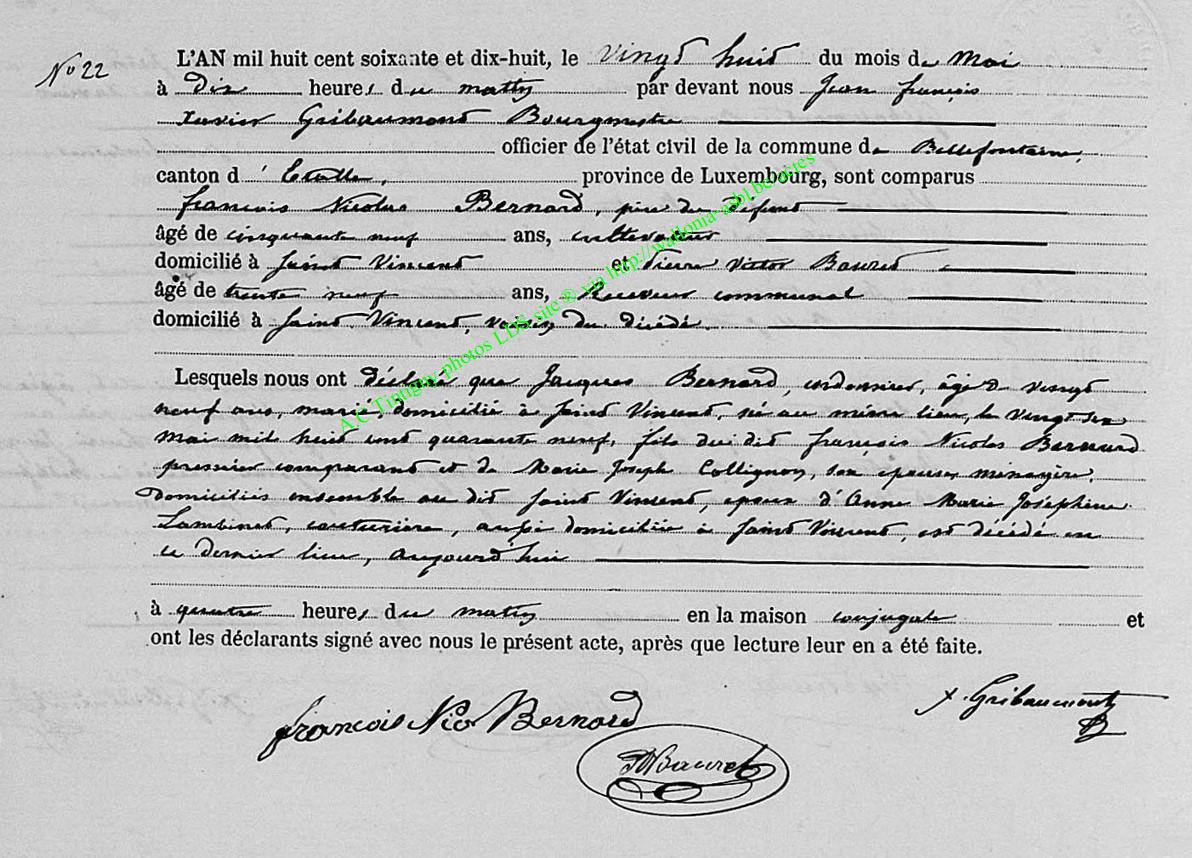 No 22
L'AN mil huit cent soixante et dix-huit, le vingt huit du mois de Mai
à Dix heures du matin par devant nous Jean françois
Xavier Gribaumont Bourgmestre
officier de l'état civil de la commune de Bellefontaine,
canton d'Etalle, province de Luxembourg, sont comparus
françois Nicolas Bernard, père du défunt
âgé de cinquante neuf ans, cultivateur
domicilié à Saint Vincent et Pierre Victor Bauret
âgé de trente neuf ans, Receveur communal
domicilié à Saint Vincent, voisin du décédé.
Lesquels nous ont déclaré que Jacques Bernard, cordonnier, âgé de vingt
neuf ans, marié, domicilié à Saint Vincent, né au même lieu, le vingt six
mai mil huit cent quarante neuf, fils du dit françois Nicolas Bernard
premier comparant et de Marie Joseph Collignon, son epouse, ménagère,
domiciliés ensemble au dit Saint Vincent, epoux d'Anne Marie Joséphine
Lambinet, couturière, aussi domiciliée à Saint Vincent, est décédé en
ce dernier lieu, aujourd'hui
à quatre heures du matin en la maison conjugale et
ont les déclarants signé avec nous le présent acte, après que lecture leur en a été faite.
x. Gribaumont
francois Nico Bernard
PVBauret
A.C Tintigny photos LDS site ® via http://wallonia-asbl.be/actes